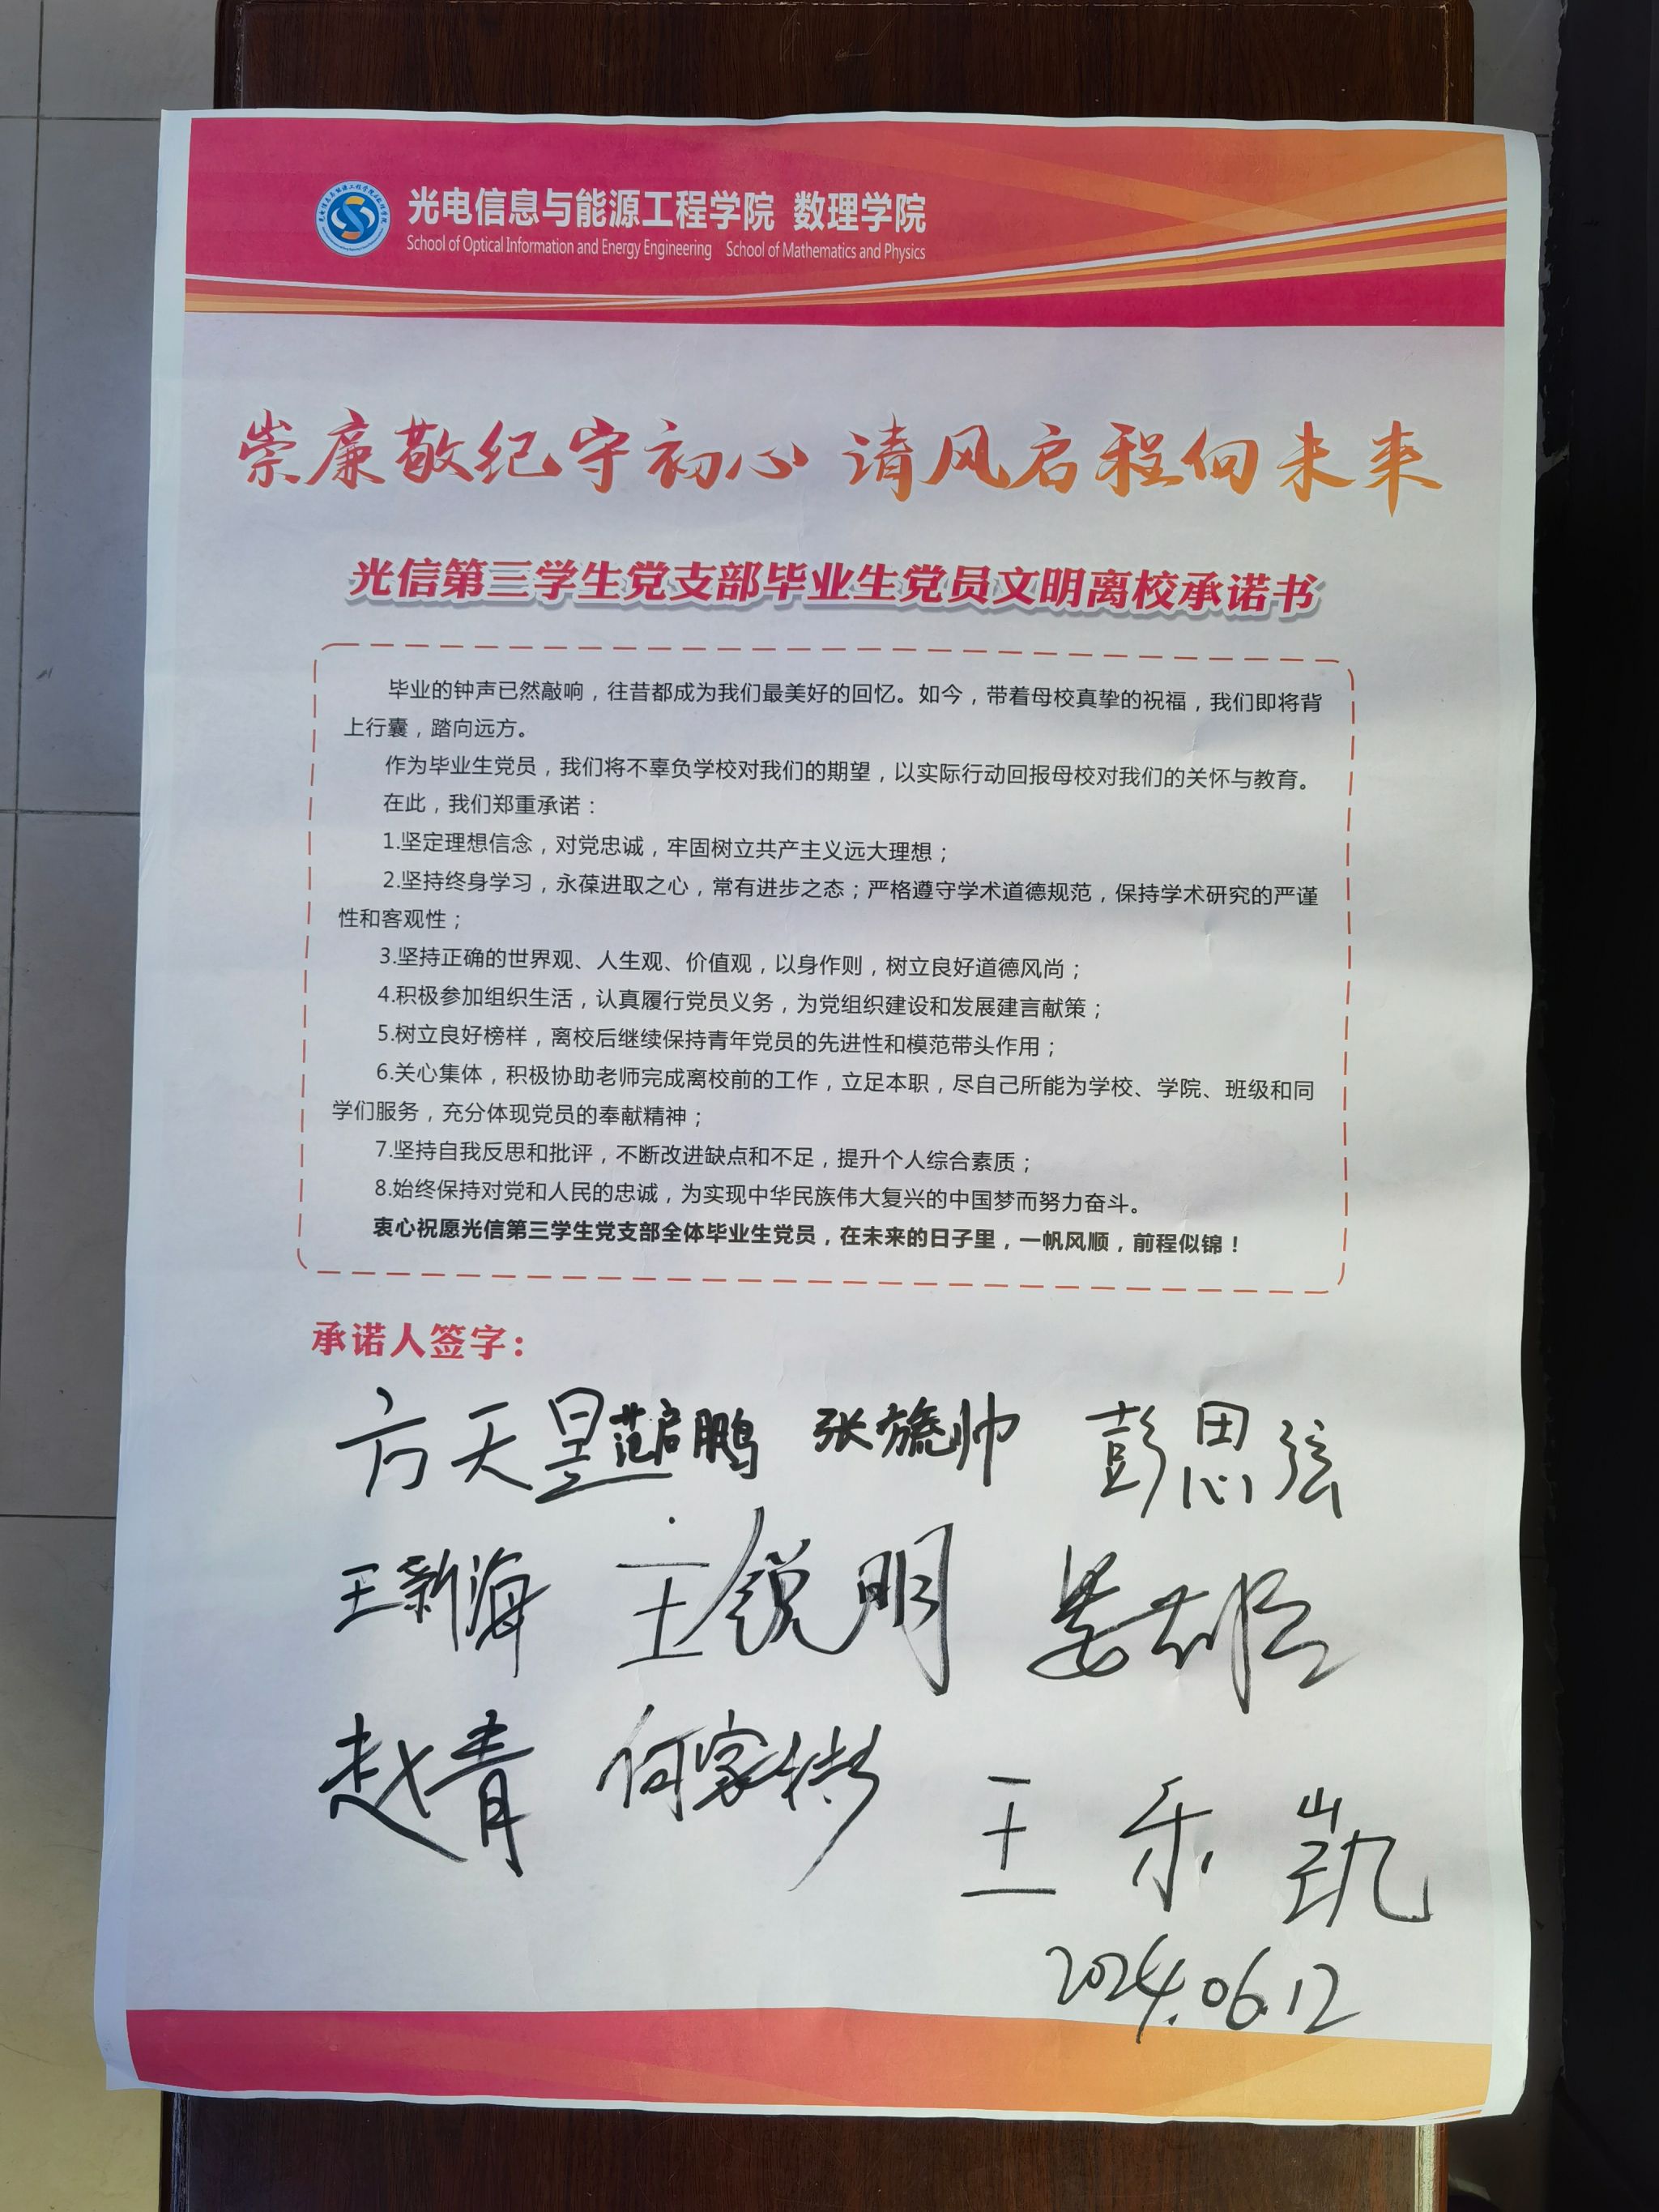 光电信息与能源工程学院 数理学院
School of Optical Information and Energy Engineering School of Mathematics and Physics
崇廉敬纪守初心 清风启程向未来
光信第三学生党支部毕业生党员文明离校承诺书
毕业的钟声已然敲响，往昔都成为我们最美好的回忆。如今，带着母校真挚的祝福，我们即将背
上行囊，踏向远方。
作为毕业生党员，我们将不辜负学校对我们的期望，以实际行动回报母校对我们的关怀与教育。
在此，我们郑重承诺：
1.坚定理想信念，对党忠诚，牢固树立共产主义远大理想；
2.坚持终身学习，永葆进取之心，常有进步之态；严格遵守学术道德规范，保持学术研究的严谨
性和客观性；
3.坚持正确的世界观、人生观、价值观，以身作则，树立良好道德风尚；
4.积极参加组织生活，认真履行党员义务，为党组织建设和发展建言献策；
5.树立良好榜样，离校后继续保持青年党员的先进性和模范带头作用；
6.关心集体，积极协助老师完成离校前的工作，立足本职，尽自己所能为学校、学院、班级和同
学们服务，充分体现党员的奉献精神；
7.坚持自我反思和批评，不断改进缺点和不足，提升个人综合素质；
8.始终保持对党和人民的忠诚，为实现中华民族伟大复兴的中国梦而努力奋斗。
衷心祝愿光信第三学生党支部全体毕业生党员，在未来的日子里，一帆风顺，前程似锦！
承诺人签字：
方天昱 范启鹏 张旖帅 彭思弦
王新海 王锐明
赵青 何家 王乐凯
2024.06.12